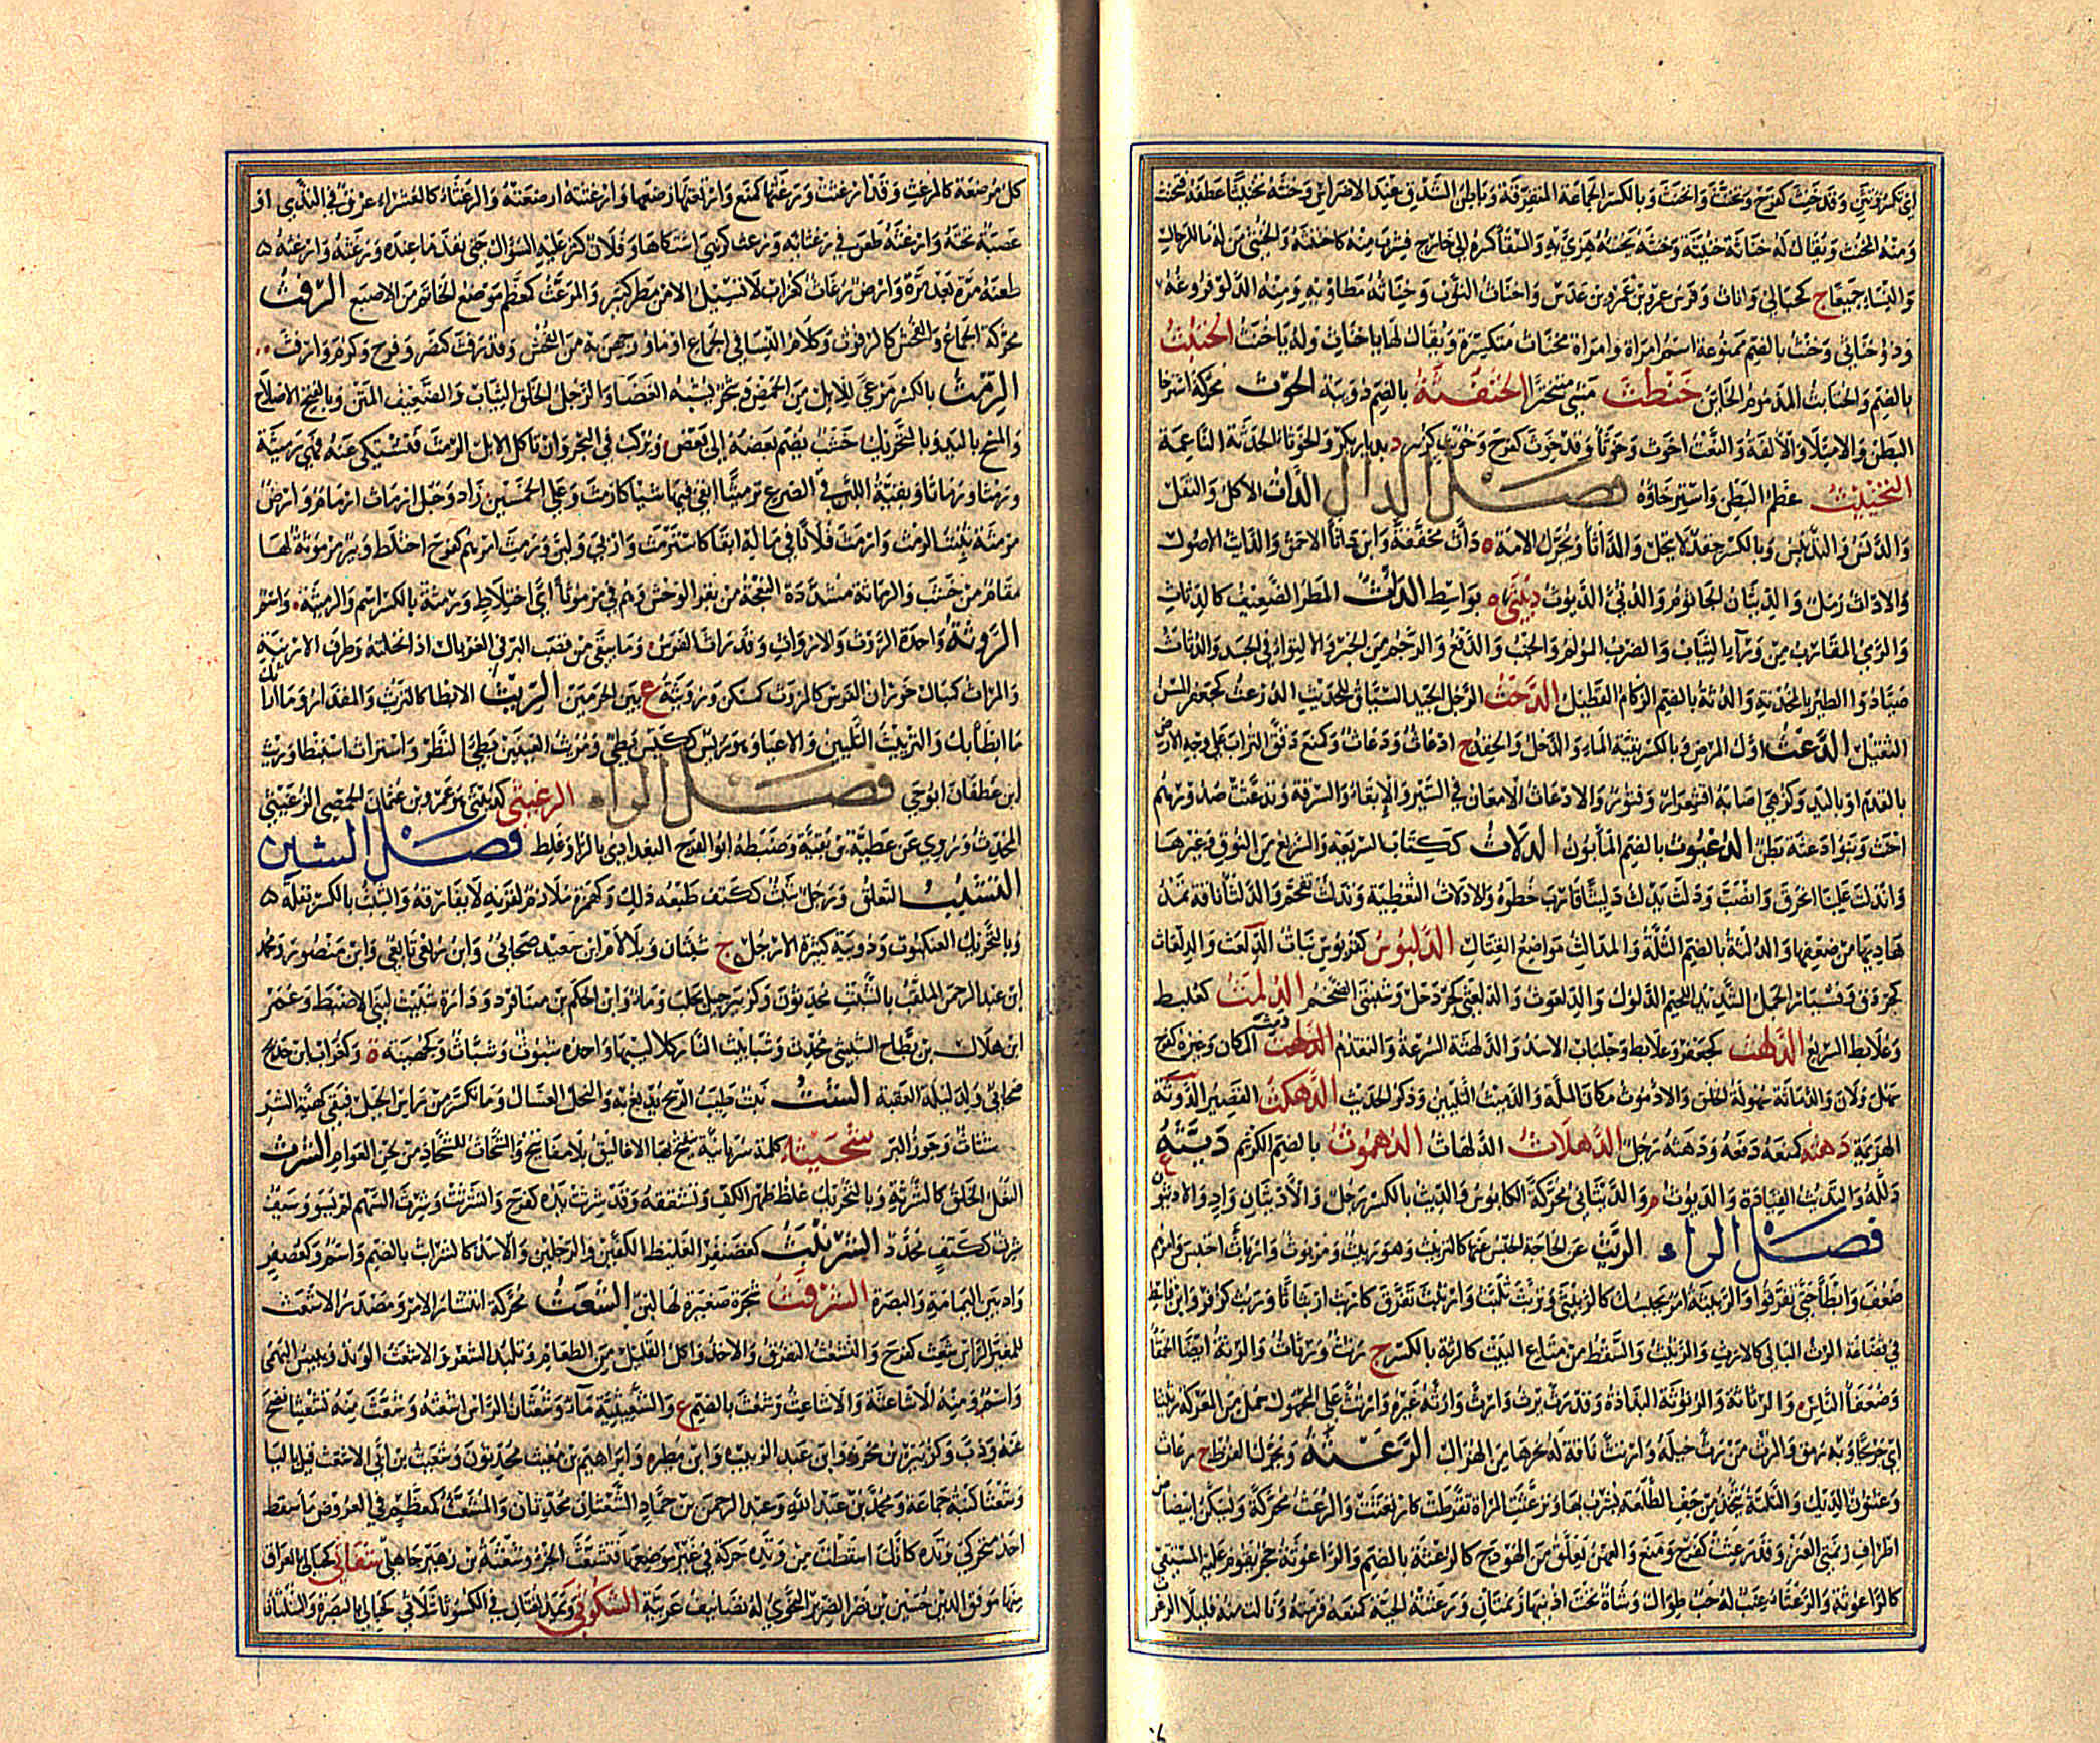 اى تكسر وتثن وقد خنث كفرح وتخنث وانخنث وبالكسر الجماعة المتفرقة وباطن الشدق عند الاضراس وخنثه تخنيثا عطفه فتخنث
ومنه المخنث ويقال له خناثة وخنيثة وخنثه يخنثه هزئ به والسقاء كسره الى خارج فشرب منه كاختنثه والخنثى من له ما للرجال
والنساء جميعا ج كحبالى واناث وفرس عمرو بن عمرو بن عدس واخناث الثوب وخناثه مطاويه ومنه الدلو فروغه
وذو خناثى وخنث بالضم ممنوعة اسم امراة وامراة مخناث متكسرة ويقال لها ياخناث وله ياخنث الخنبث
بالضم والخنابث المذموم الخائن خنطث مشى متبخترا الخنفثة بالضم دويبة الحوث محركة استرخا
البطن والامتلاء والالفة والنعت اخوث وخوثاء وقد خوث كفرح وخوث كزبير د بديار بكر والخوثاء الحدثة الناعمة
التخييث عظم البطن واسترخاؤه فصل الدال الداث الاكل والثقل
والدنس والتدليس وبالكسر حقد لا ينحل والداثاء ويحرك الامة داث مخففة وابن داثاء الاحمق والدات الاصول
والادات رمل والدئثان الجاثوم والدئثي الديوث دبيثى ة بواسط الدث المطر الضعيف كالدثاث
والرمى المقارب من ورآء الثياب والضرب المولم والجنب والدفع والرجم من الخبر والالتواء في الجسد والدثاث
صيادوا الطير بالمخذفة والدثة بالضم الزكام القليل الدحث الرجل الجيد السياق للحديث الدرعث كجعفر المسن
الثقيل الدعث اول المرض وبالكسر بقية الماء والذحل والحقد ج ادعاث ودعاث وكمنع دقق التراب على وجه الارض
بالقدم او باليد وكزهى اصابه اقشعرار وفتور والادعاث الامعان في السير والابقاء والسرقة وتدعثت صدورهم
احنت وبنو دعثة بطن الدعبوث بالضم المأبون الدلاث ككتاب السريعة والسريع من النوق وغيرها
واندلث علينا انخرق وانصب ودلث يدلث دليثا قارب خطوه والادلاث التغطية وتدلث تقحم والدلثاء ناقة تمد
هاديها من ضعفها والدلثة بالضم الثلة والمدالث مواضع القتال الدلبوث كقربوس نبات الدلعث والدلعاث
كجردق وقسطار الجمل الشديد اللحيم الذلول والدلعوث والدلعثى كجردحل وسبنتى الضخم الدلمث كعلبط
وعلابط السريع الدلهث كجعفر وعلابط وجلباب الاسد والدلهثة السرعة والتقدم الدلهث دمث المكان وغيره كفرح
سهل ولان والدماثة سهولة الخلق والادموث مكان الملة والتدميث التليين وذكر الحديث الدهكث القصير الدوثة
الهزيمة دهثه كمنعه دفعه ودهثة رجل الدهلاث الدلهاث الدهموث بالضم الكريم ديثه
ذلله والتديث القيادة والديوث م والديثانى محركة الكابوس والديث بالكسر رجل والاديثان واد والاديثون ع
فصل الراء الربث عن الحاجة الحبس عنها كالتربيث وهو ربيث ومربوث واربأث احتبس وامرهم
ضعف وابطأ حتى تفرقوا والربيثة امر يحبسك كالربيثى وتربث تلبث واربث تفرق كاربث اربثاثا وربث كزفر وابن قاسط
في قضاعة الرث البالى كالارث والرثيث والسقط من متاع البيت كالرثة بالكسر ج رثث ورثاث والرثة ايضا الحمقا
وضعفا الناس والرثاثة والرثوثة البذاذة وقد رث يرث وارث وارثه غيره وارتث على المجهول حمل من المعركة رثيثا
اى جريحا وبه رمق والمرث من رث حبله وارتث ناقة له نحرها من الهزال الرعثة ويحرك القرط ج رعاث
وعثنون الديك والتلتلة تتخذ من جف الطلعة يشرب بها وترعثت المراة تقرطت كارتعثت والرعث محركة ويسكن ابيضاض
اطراف زنمتى العنز وقد رعث كفرح ومنع والعهن يعلق من الهودج كالرعثة بالضم والراعوثة حجر يقوم عليه المستقى
كالراعوثة والرعثاء عنب له حب طوال وشاة تحت اذنيها زنمتان ورعثته الحية كمنعه قرصته ونالت منه قليلا الرغوث
كل مرضعة كالمرغث وقد ارغثت ورغثها كمنع وارتغثها رضعها وارغثته ارضعته والرغثاء كالعشراء عرق في الثدى او
عصبة تحته وارغثه طعن في رغثائه ورغث كزهى اشتكاها وفلان كثر عليه السؤال حتى نفد ما عنده ورغثه وارغثه
طعنه مرة بعد مرة وارض رغاث كغراب لا تسيل الا من مطر كبير والمرغث كمعظم موضع الخاتم من الاصبع الرفث
محركة الجماع والفحش كالرفوث وكلام النسا في الجماع او ما ووجهن به من الفحش وقد رفث كنصر وفرح وكرم وارفث
الرمث بالكسر مرعى للابل من الحمض وشجر يشبه الغضا والرجل الخلق الثياب والضعيف المتن وبالفتح الاصلاح
والمسح باليد وبالتحريك خشب يضم بعضه الى بعض ويركب في البحر وان تأكل الابل الرمث فتشتكى عنه فهي رمثة
ورمثى ورماثى وبقية اللبن في الضرع رمثها ابقى فيها شيا كارمث وعلى الخمسين زاد وحبل ارماث ارمام وارض
مرمثة تنبت الرمث وارمث فلانا في ماله ابقا كاسترمث واربى ولين ورمث امرهم كفرح اختلط وبئر مرموثة لها
مقام من خشب والرماثة مشددة النعجة من بقر الوحش وهم في مرموثاء اى اختلاط ورمثة بالكسر اسم والرميثة واسم
الروثة واحدة الروث والارواث وقد راث الفرس وما يبقى من قصب البر في الغربال اذا نخلته وطرف الارنبة
والمراث كمبال خوران الفرس كالمروث كمسكن ورويثة ع بين الحرمين الريث الابطا كالتريث والمقدار وما اراثك
ما ابطأبك والترييث التليين والاعياء وهو ريث ككيس بطئ ومريث العينين بطئ النظر واستراث استبطا وريث
ابن غطفان ابوحى فصل الزاء الزغيثى كزبيرى عمرو بن عثمان الحمصى الزغيثى
المحدث وروى عن عطية بن بقية وضبطه ابوالفرح البغدادى بالراء وغلط فصل الشين
التشبث التعلق ورجل شبث ككتف طبعه ذلك وكهمزة ملازم لقرنه لايفارقه والشبث بالكسر بقلة
وبالتحريك العنكبوت ودويبة كثيرة الارجل ج شبثان وبلا لام ابن سعيد صحابى وابن ربعى تابعى وابن منصور ومحمد
ابن عبدالرحمن الملقب بالشبث محدثون وكزبير جبل بحلب وماء وابن الحكم بن مينا فرد ودارة شبيث لبنى الاضبط وعمر
ابن هلال بن بطاح الشبثى محدث وشبابيث النار كلاليبها واحده شبوث وشباث وكجهينة ة وكغراب ابن خديج
صحابى ولد ليلة العقبة الشث نبت طيب الريح يدبغ به والنحل العسال وما تكسر من راس الجبل فبقى كهيئة الشرف
شثاث وجوز البر شحيثا كلمة سريانية تنفتح بها الاغاليق بلا مفاتيح والشحاث للشحاذ من لحن العوام الشرث
النعل الخلق كالشرثة وبالتحريك غلظ ظهر الكف وتشققه وقد شرثت يده كفرح وانشرثت وشرث السهم لم يسو وسيف
شرث ككتف محدد الشرنبث كغضنفر الغليظ الكفين والرجلين والاسد كالشرابث بالضم واسم وكعصيفر
واد بين اليمامة والبصرة الشرفث شجرة صغيرة لها لبن الشعث محركة انتشار الامر ومصدر الاشعث
للمغبر الراس شعث كفرح والتشعث التفرق والاخذ واكل القليل من الطعام وتلبد الشعر والاشعث الوتد ويبيس البهمى
واسم ومنه الاشاعثة والاشاعث وشعث بالضم ع والشعيثية ماء وشعثان الراس اشعثه وشعث منه تشعيثا نضح
عنه وذب وكزبير بن محرز وابن عبد الزبيب وابن مطر وابراهيم بن شعيث محدثون وشعيث بن ابى الاشعث قيل بالبا
وشعثا كنية جماعة ومحمد بن عبدالله وعبدالرحمن بن حماد الشعثان محدثان والمشعث كمعظم في العروض ما سقط
احد متحركى وتده كانك اسقطت من وتده حركة في غير موضعها فتشعث الجزء وشعثة بن زهير جاهلى شفاثى كحبالى بالعراق
منها موفق الدين حسين بن نصر الضرير النحوى له تصانيف عربية الشكوثى ويمد القتال في الكشوثا شلاثى كحبالى بالبصرة والشلثانا